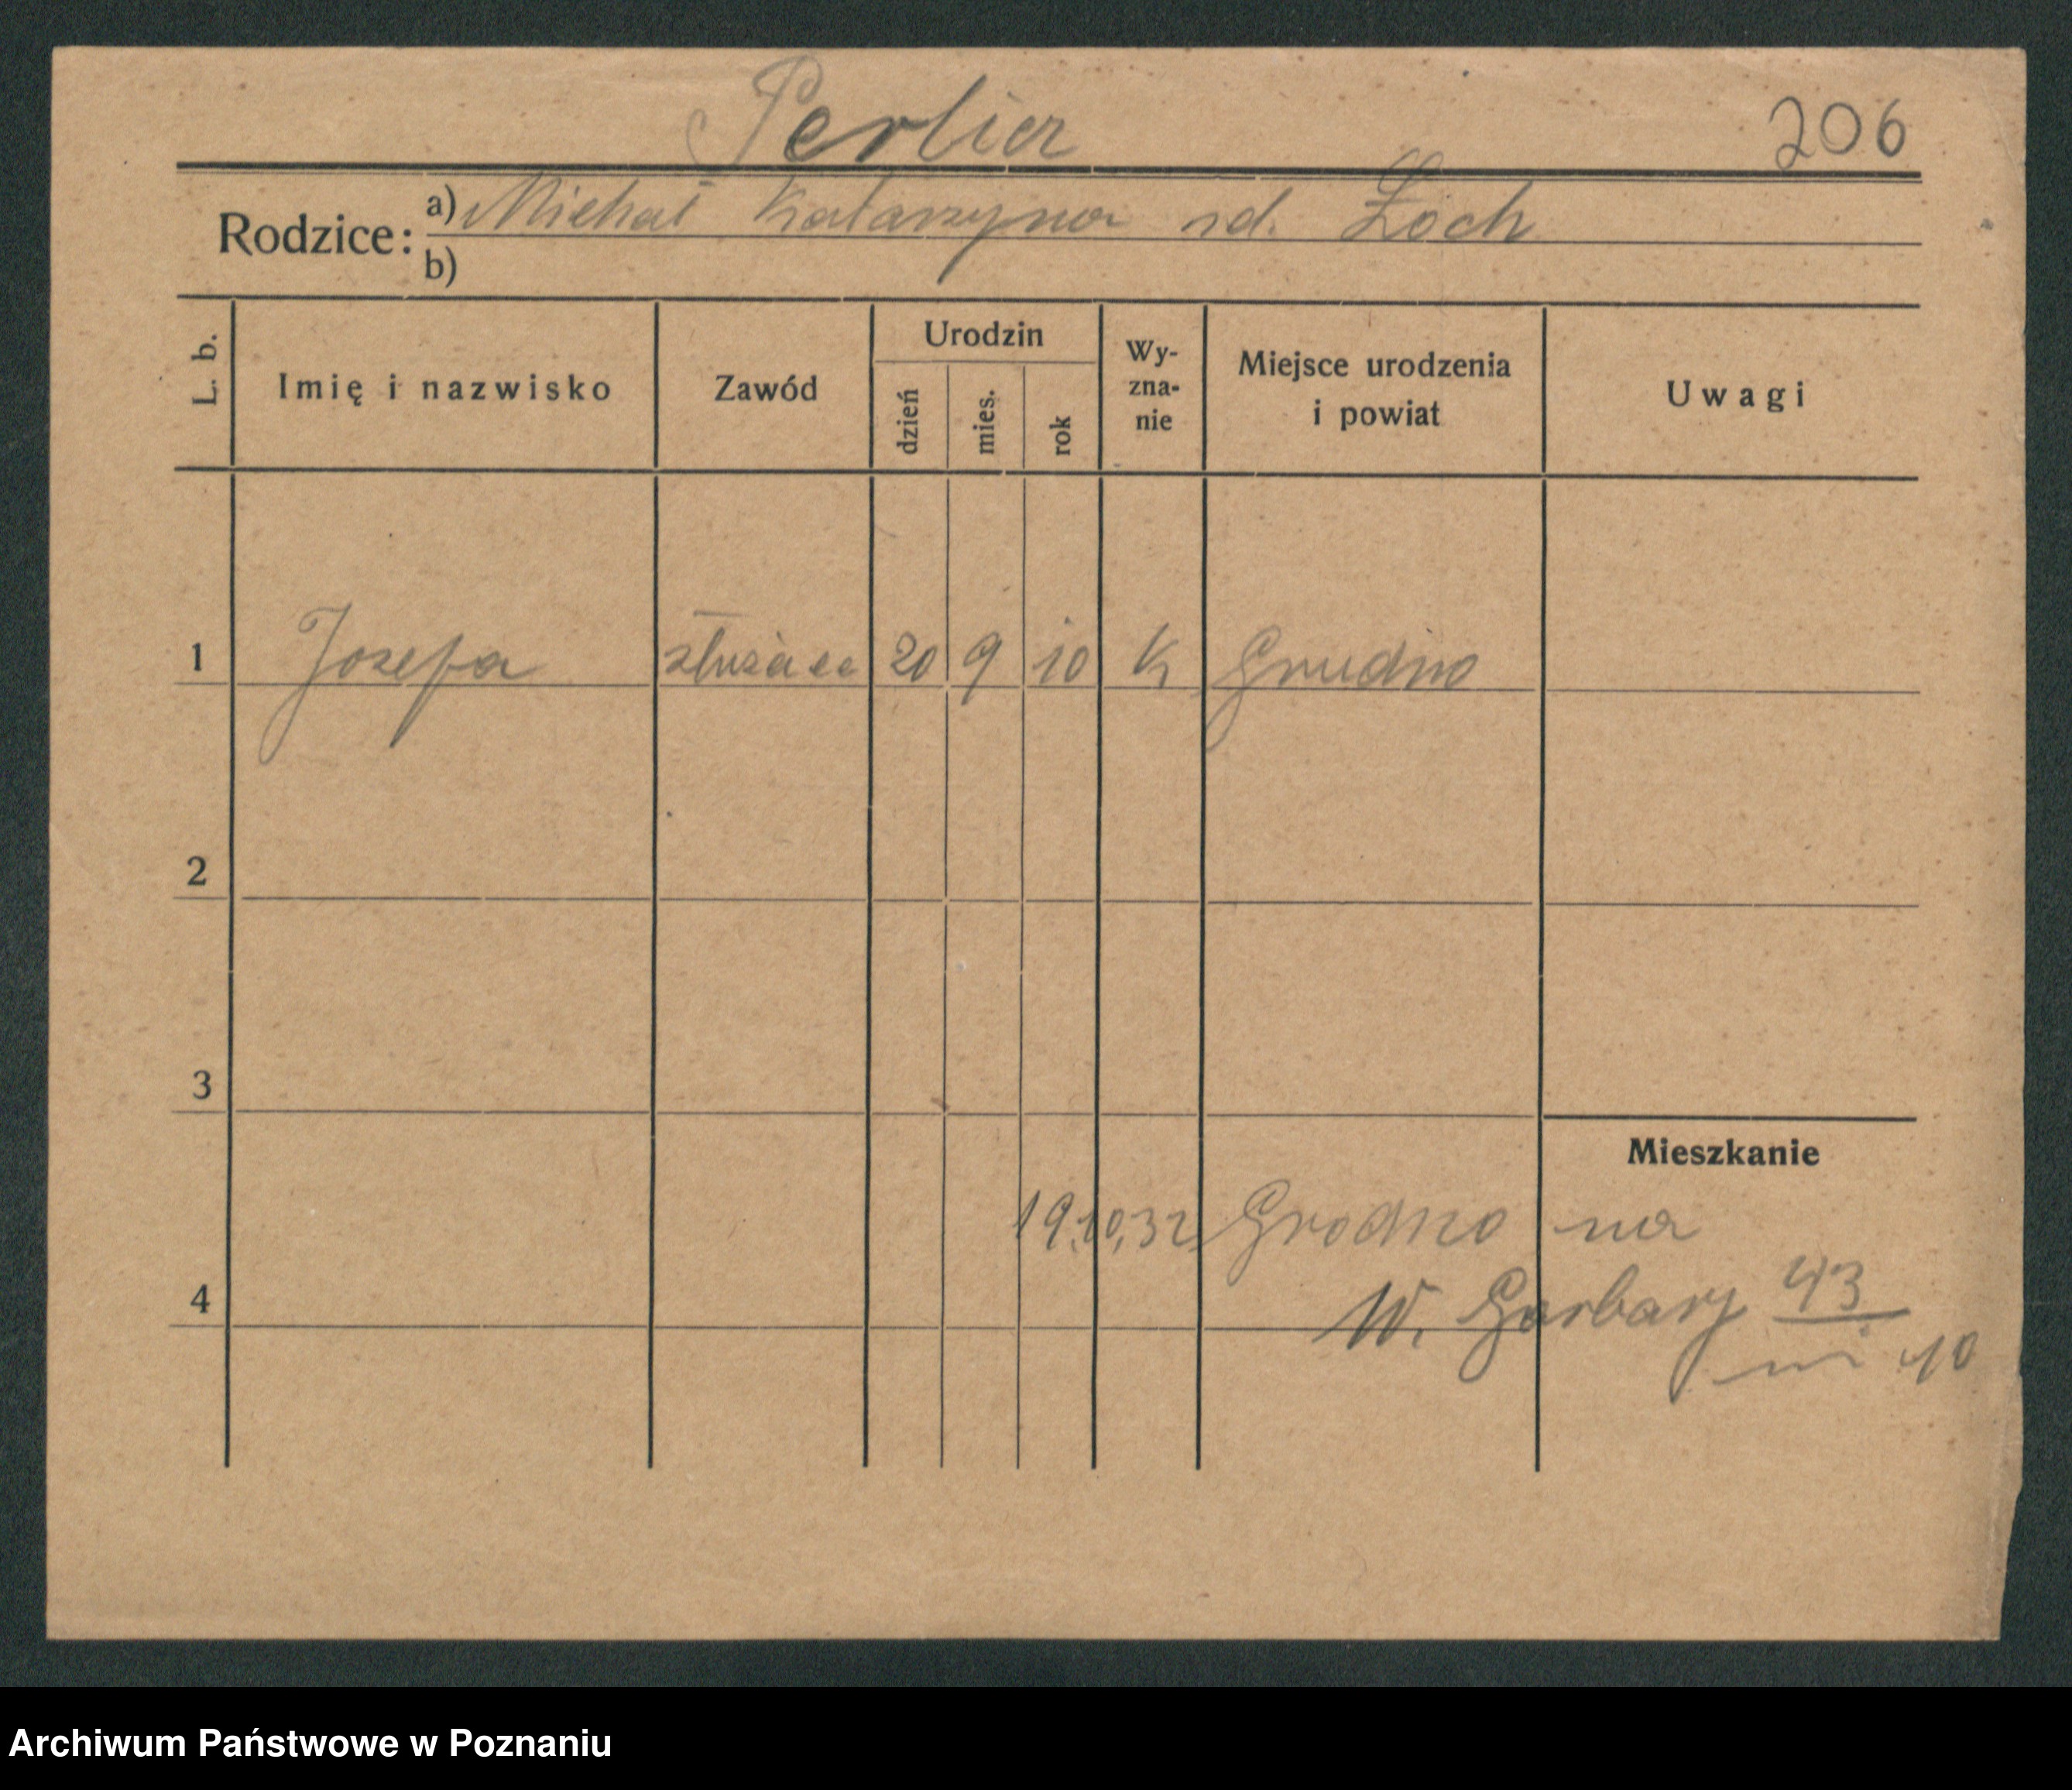 Perlicz 206
Rodzice: a) Michał Katarzyna rd. Żoch
b)
L. b. Imię i nazwisko Zawód Urodzin dzień mies. rok Wy-zna-nie Miejsce urodzenia i powiat Uwagi
1 Józefa służąca 20 9 10 K Grudno
2
3
Mieszkanie
19.10.32 Grodno na
4 W. Garbary 43
m 10
Archiwum Państwowe w Poznaniu